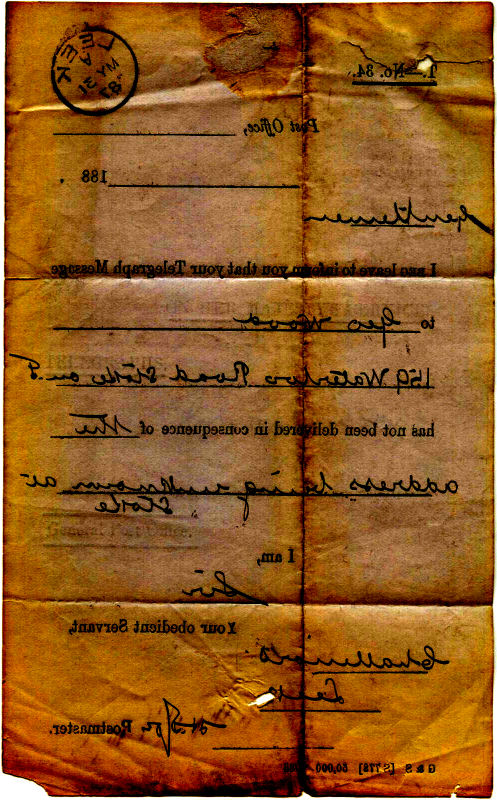 1.—No. 34.
LEEK
A
MY 21
83
Post Office,
188 .
Gentlemen
I beg leave to inform you that your Telegraph Message
to Geo Wood
159 Waterloo Road Stoke on T
has not been delivered in consequence of the
address being unknown at
Stoke
I am,
Sir
Your obedient Servant,
Challinors
Leek
Postmaster.
G & S [S 778] 50,000